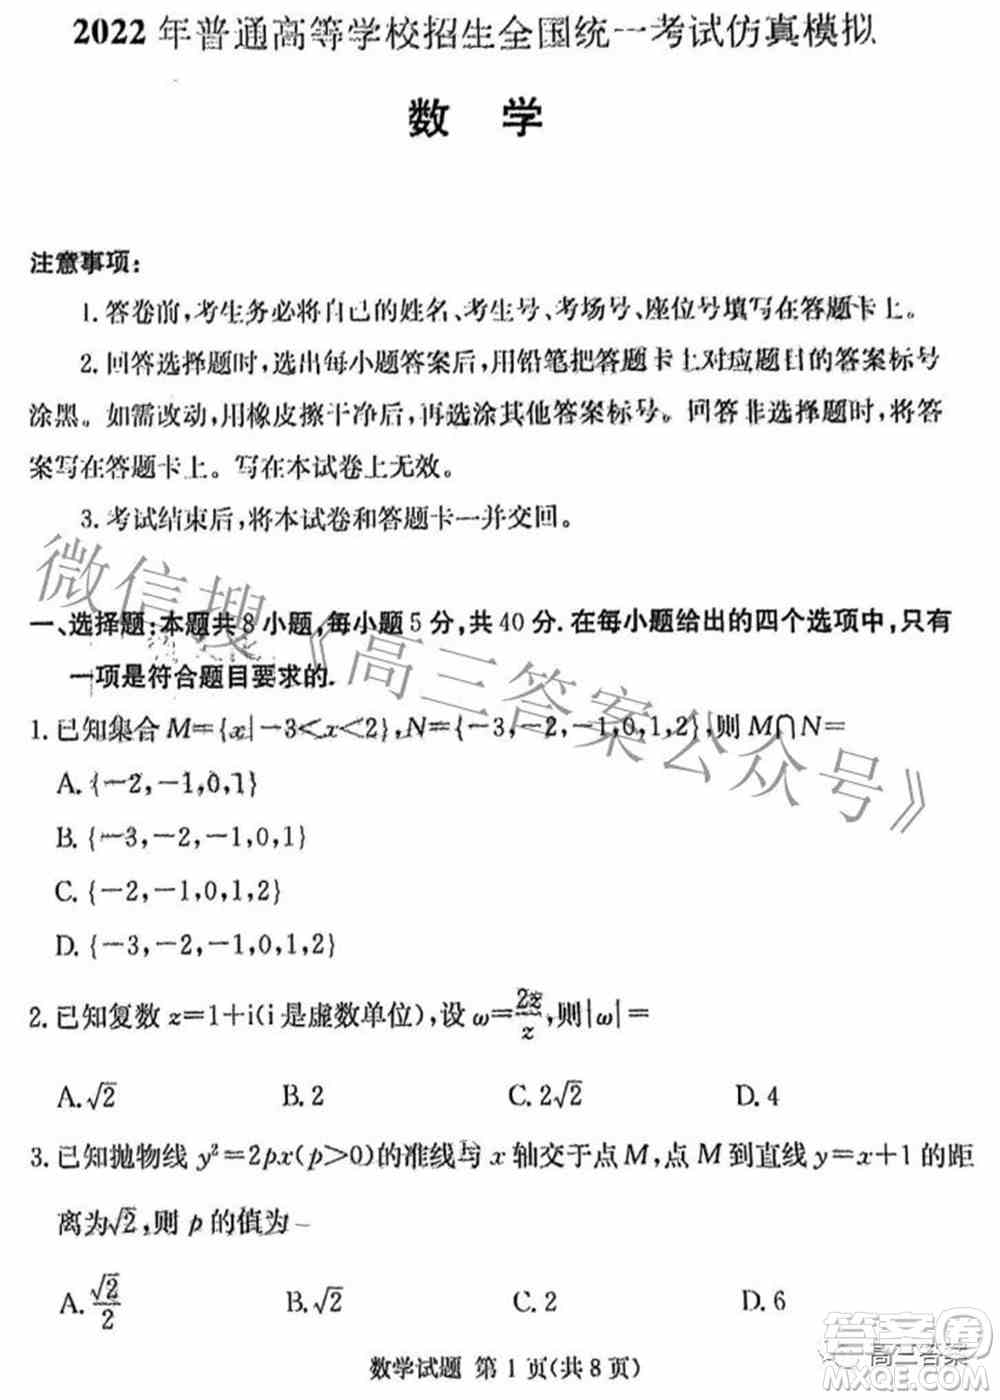 2022 年普通高等学校招生全国统一考试仿真模拟
数 学
注意事项:
1. 答卷前,考生务必将自己的姓名、考生号、考场号、座位号填写在答题卡上。
2. 回答选择题时,选出每小题答案后,用铅笔把答题卡上对应题目的答案标号
涂黑。如需改动,用橡皮擦干净后,再选涂其他答案标号。回答非选择题时,将答
案写在答题卡上。写在本试卷上无效。
3. 考试结束后,将本试卷和答题卡一并交回。
微信搜《高三答案公众号》
一、选择题:本题共8小题,每小题5分,共40分. 在每小题给出的四个选项中,只有
一项是符合题目要求的.
1. 已知集合 M={x|-3<x<2},N={-3,-2,-1,0,1,2},则 M∩N=
A. {-2,-1,0,1}
B. {-3,-2,-1,0,1}
C. {-2,-1,0,1,2}
D. {-3,-2,-1,0,1,2}
2. 已知复数 z=1+i(i 是虚数单位),设 ω=2z̄/z,则|ω|=
A. √2 B. 2 C. 2√2 D. 4
3. 已知抛物线 y²=2px(p>0)的准线与 x 轴交于点 M,点 M 到直线 y=x+1 的距
离为√2,则 p 的值为
A. √2/2 B. √2 C. 2 D. 6
数学试题 第 1 页(共 8 页)
高三答案
答案圈
MXQE.COM